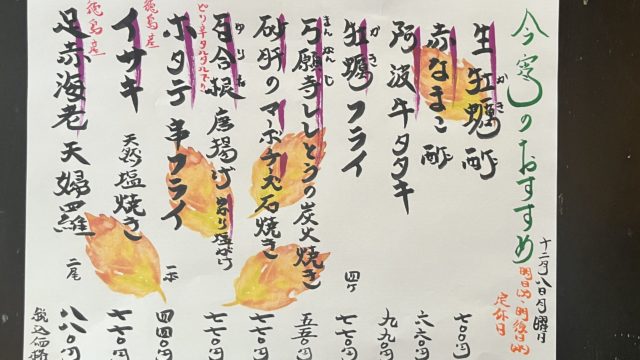 今宵のおすすめ
十二月八日月曜日
明日(火)、明後日(水)
定休日
かき
生牡蠣酢 七〇〇円
赤なまこ酢 六六〇円
阿波牛タタキ 九九〇円
かき
牡蠣フライ 四ヶ 七七〇円
まんがんじ
万願寺ししとうの炭火焼き 五五〇円
砂肝のマーボチーズ石焼き 七七〇円
ゆりね
百合根唐揚げ 岩り塩がけ 七七〇円
ピリ辛タルタルで
ホタテ串フライ 一本 四四〇円
徳島産
イサキ 天然塩焼き 七七〇円
徳島産
足赤海老天婦羅 二尾 八八〇円
税込価格